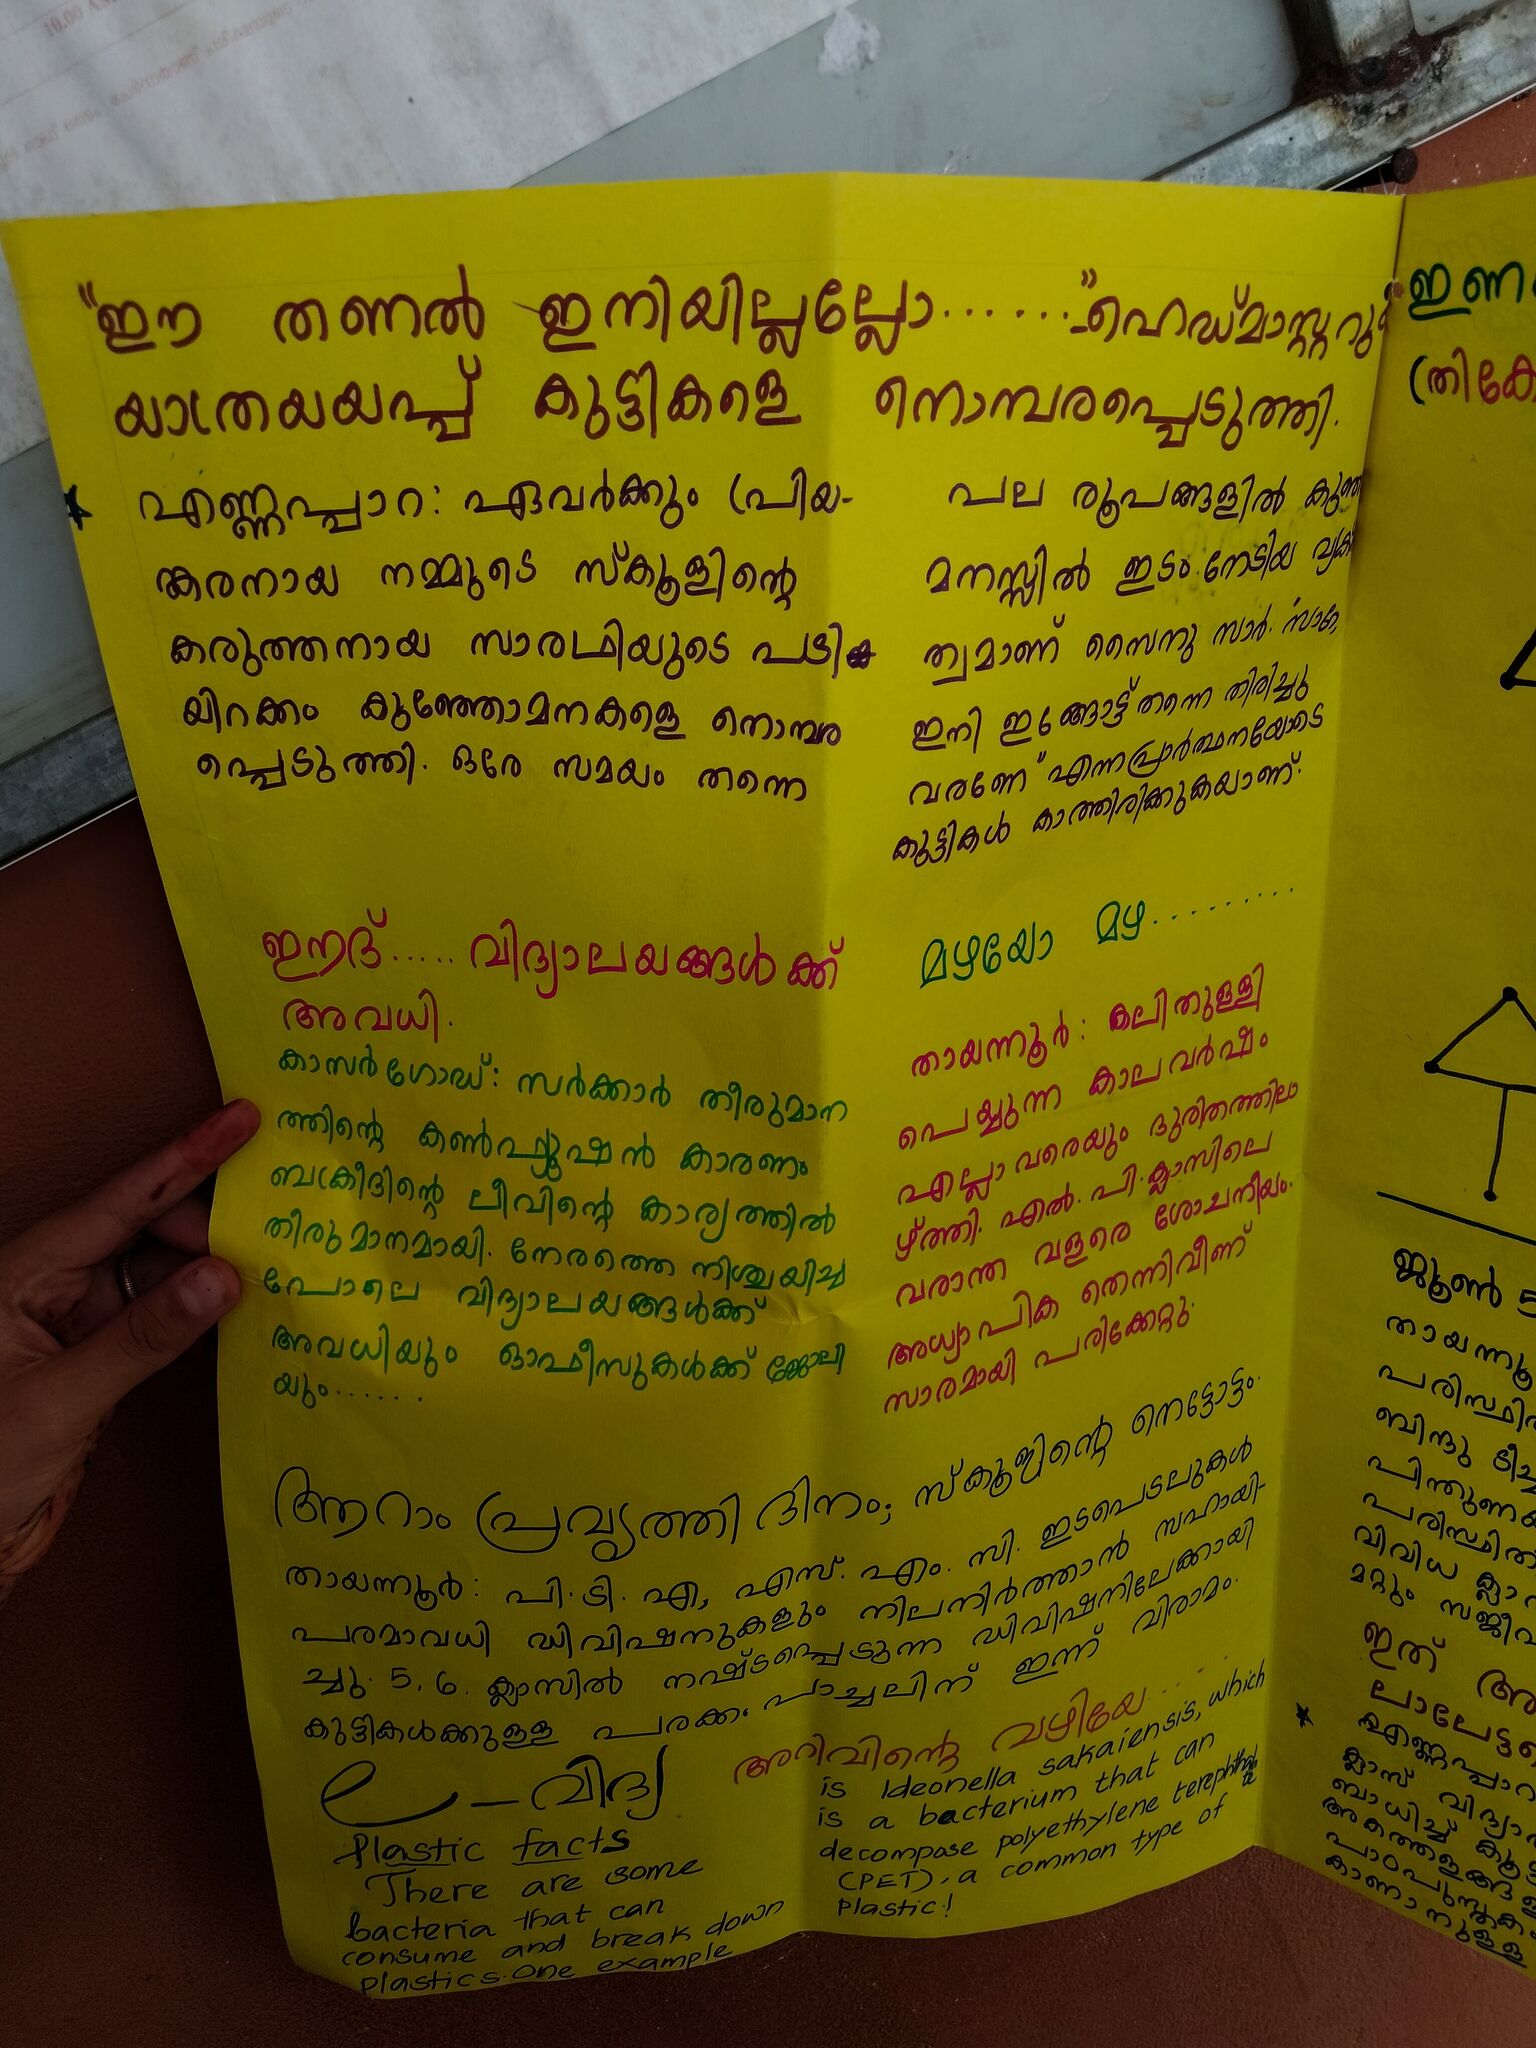 "ഈ തണൽ ഇനിയില്ലല്ലോ......."-ഹെഡ്മാസ്റ്ററുടെ
യാത്രയയപ്പ് കുട്ടികളെ നൊമ്പരപ്പെടുത്തി.
എണ്ണപ്പാറ: ഏവർക്കും പ്രിയ-
ങ്കരനായ നമ്മുടെ സ്കൂളിന്റെ
കരുത്തനായ സാരഥിയുടെ പടി
യിറക്കം കുഞ്ഞോമനകളെ നൊമ്പര
പ്പെടുത്തി. ഒരേ സമയം തന്നെ
പല രൂപങ്ങളിൽ
മനസ്സിൽ ഇടം നേടിയ
ത്വമാണ് സൈനു സാർ.
ഇനി ഇങ്ങോട്ട് തന്നെ തിരിച്ചു
വരണേ" എന്ന പ്രാർത്ഥനയോടെ
കുട്ടികൾ കാത്തിരിക്കുകയാണ്.
ഈദ്..... വിദ്യാലയങ്ങൾക്ക്
അവധി.
കാസർഗോഡ്: സർക്കാർ തീരുമാന
ത്തിന്റെ കൺഫ്യൂഷൻ കാരണം
ബക്രീദിന്റെ ലീവിന്റെ കാര്യത്തിൽ
തീരുമാനമായി. നേരത്തെ നിശ്ചയിച്ച
പോലെ വിദ്യാലയങ്ങൾക്ക്
അവധിയും ഓഫീസുകൾക്ക് ജോലി
യും.......
മഴയോ മഴ.........
തായന്നൂർ: കലിതുള്ളി
പെയ്യുന്ന കാലവർഷം
എല്ലാവരെയും ദുരിതത്തിലാ
ഴ്ത്തി. എൽ.പി.ക്ലാസിലെ
വരാന്ത വളരെ ശോചനീയം.
അധ്യാപിക തെന്നിവീണ്
സാരമായി പരിക്കേറ്റു.
ആറാം പ്രവൃത്തി ദിനം; സ്കൂളിന്റെ നെട്ടോട്ടം.
തായന്നൂർ: പി.ടി.എ, എസ്.എം.സി. ഇടപെടലുകൾ
പരമാവധി ഡിവിഷനുകളും നിലനിർത്താൻ സഹായി-
ച്ചു. 5, 6. ക്ലാസിൽ നഷ്ടപ്പെടുന്ന ഡിവിഷനിലേക്കായി
കുട്ടികൾക്കുള്ള പരക്കം പാച്ചലിന് ഇന്ന് വിരാമം.
e-വിദ്യ
അറിവിന്റെ വഴിയേ...
Plastic facts
There are some
bacteria that can
consume and break down
plastics. One example
is Ideonella sakaiensis, which
is a bacterium that can
decompose polyethylene
(PET), a common type of
Plastic!
ജൂൺ 5
ബിന്ദു
വിവിധ
മറ്റും
ഇത്
ക്ലാസ്
ബാധിച്ച്